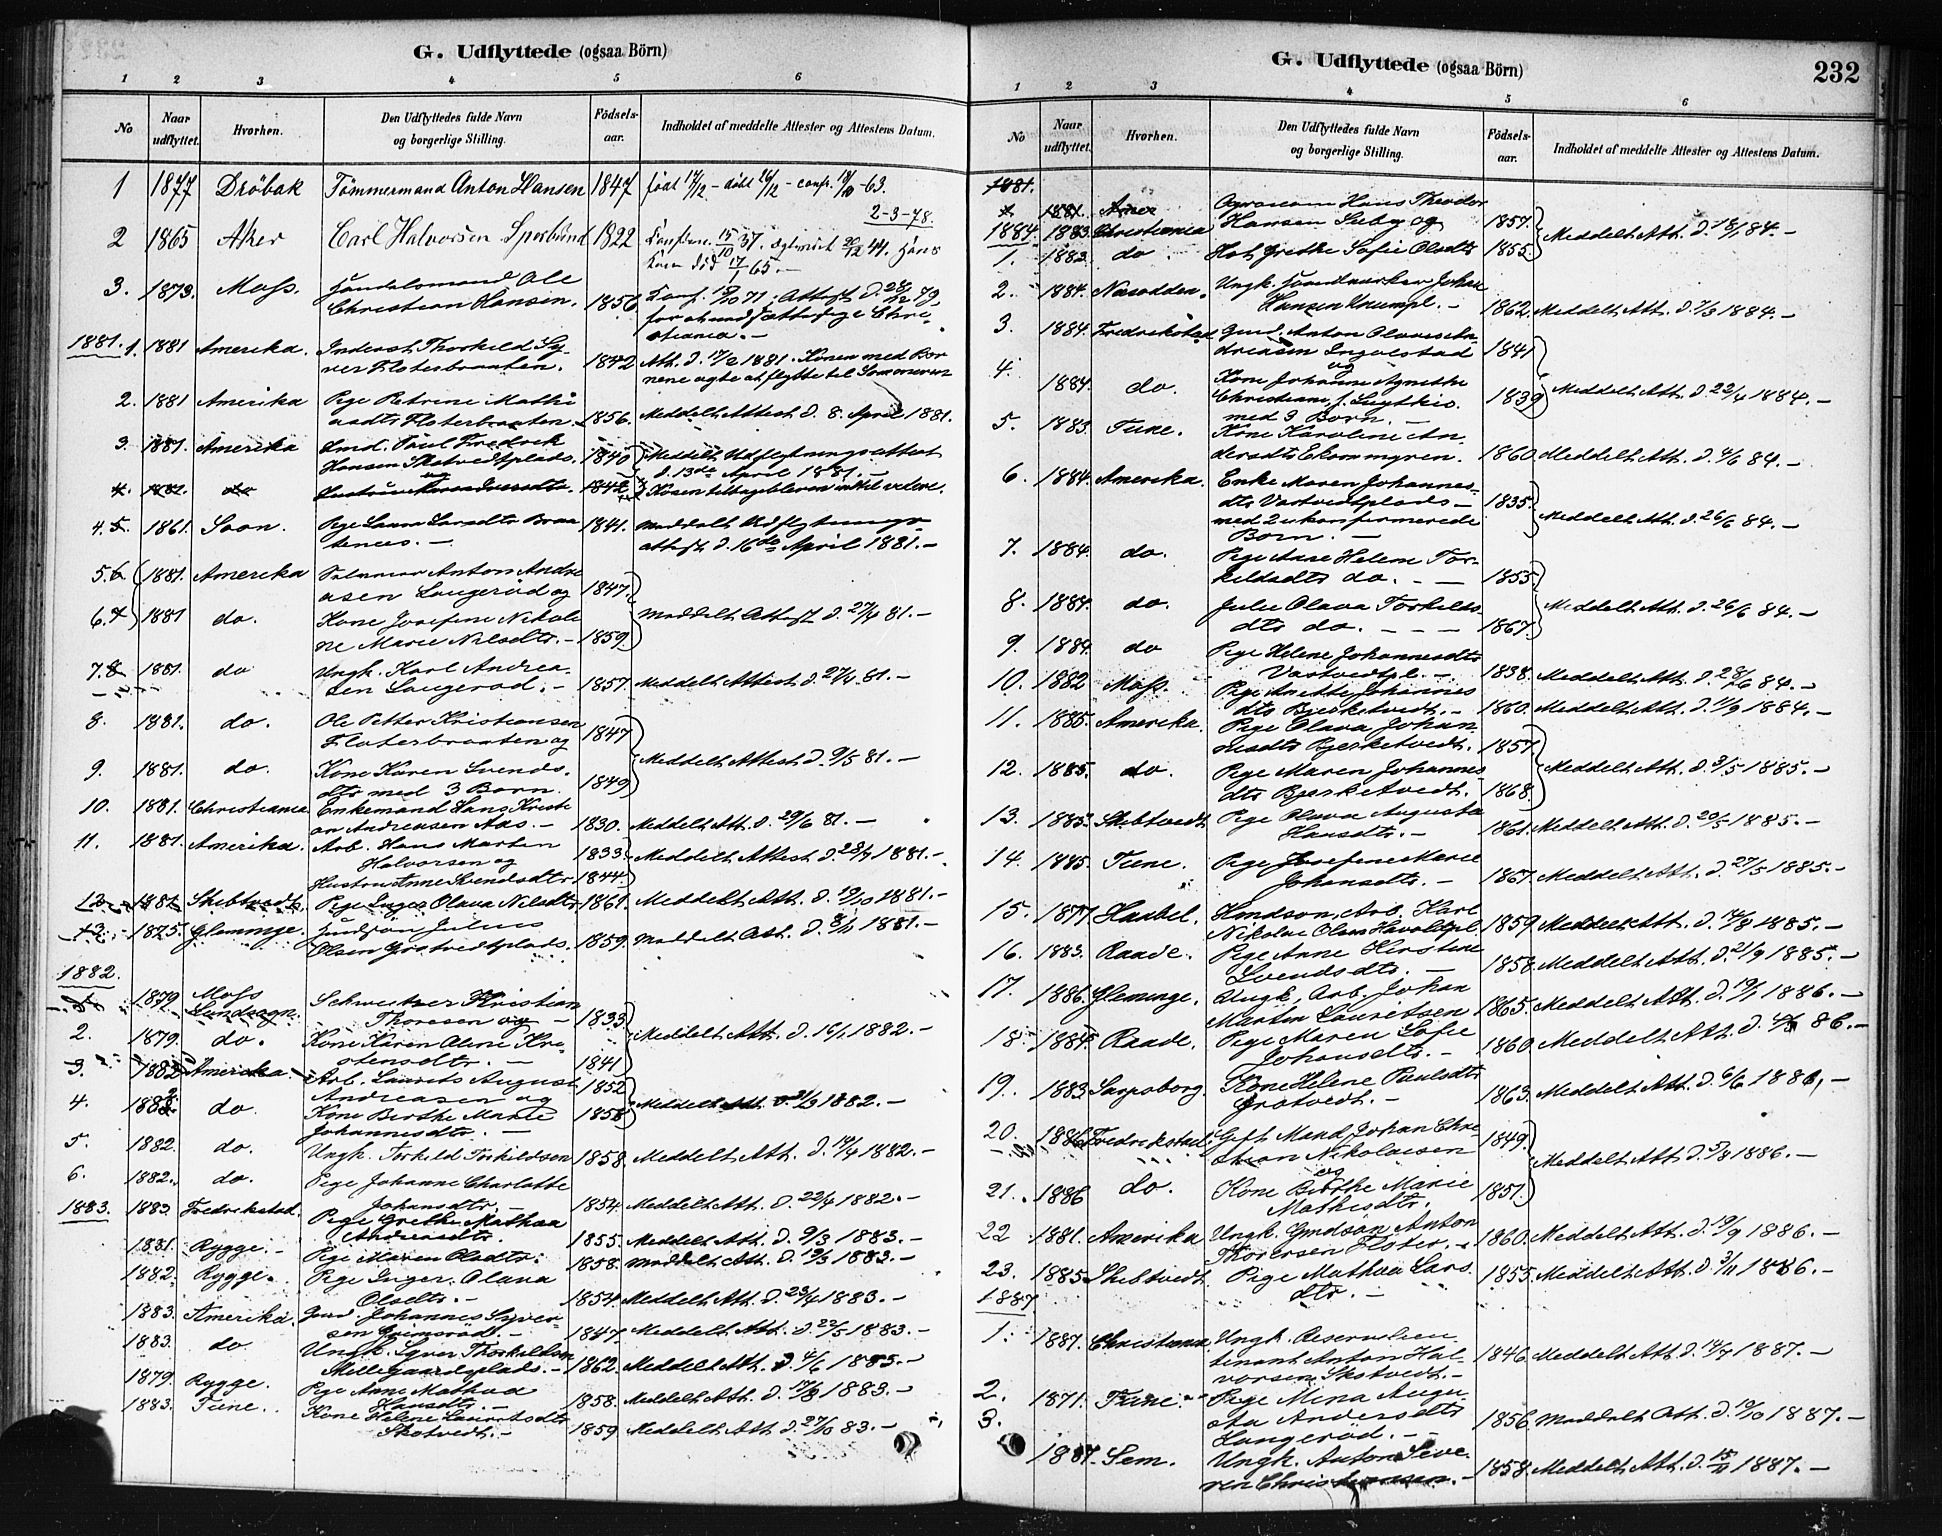 G. Udflyttede (ogsaa Börn)
1 2 3 4 5 6
No Naar udflyttet. Hvorhen. Den Udflyttedes fulde Navn og borgerlige Stilling. Födsels-aar. Indholdet af meddelte Attester og Attestens Datum.
1 1877 Dröbak Tömmermand Anton Hansen 1847 født 17/12 - döbt 26/12 - conf. -63.
2-3-78.
2 1865 Aker Carl Halvorsen 1822
3. 1873. Moss. Handelsmand Ole
Christian Hansen. 1856
1881. 1. 1881 Amerika. Inderst Thorkild Sy-
ver Floterbraaten. 1842 Att. d. 17/2 1881. Konen med Bör
nene agte at flytte til Sommeren
2. 1881 Amerika Pige Petrine Mathi
asdtr Floterbraaten. 1856. Meddelt Attest d. 8. April 1881.
3. 1881. Amerika Poul Fredrik
Hansen Skotvedtplads. 1840 Meddelt Udflytningsattest
d. 13de April 1881. -
4. 1881. do 1842 Konen tilbagebleven indtil videre.
4. 5. 1861. Soon. Pige Laura Larsdtr Braa
tenees. - 1841. Meddelt Udflytnings-
attest d. 16de April 1881. -
5. 6. 1881. Amerika Anton Andre
asen Langeröd og 1847.
6. 7. 1881 do. Kone Josefine Nikoli
ne Marie Nilsdtr. - 1859. Meddelt Attest d. 27/4 81. -
7. 8. 1881. do Ungk. Karl Andrea-
sen Langeröd. - 1857. Meddelt Attest d. 27/4 81. -
8. 1881. do. Ole Petter Kristiansen
Floterbraaten og 1847
9. 1881. do. Kone Karen Svends.
dtr med 3 Börn. 1849 Meddelt Attest d. 9/5 81. -
10. 1881. Christiania Enkemand Hans Kristi
an Andreasen Aas. - 1830. Meddelt Att. d. 29/6 81. -
11. 1881. Amerika. Arb. Hans Martin
Halvorsen og 1833 Meddelt Attest d. 1881. -
Hustru Anne Svendsdtr 1844.
12. 1881 Skibtvedt. Pige Inger Olava Nilsdtr 1861. Meddelt Att. d. 19/10 1881. -
13. 1875. Glemminge. Julius
Olsen Grotvedtplads. 1859. Meddelt Att. d. 1881. -
1882.
1. 1879. Moss
Landsogn. Kristian
Thoresen og - 1833
2. 1879. do. Kone Karen Oline Kri-
stensdtr. - 1841 Meddelt Att. d. 16/1 1882. -
3. 1882 Amerika. Arb. Laurits August 1852
Andreasen og
4. 1882. do. Kone Berthe Marie 1858 Meddelt Att. d. 1882. -
Johannesdtr. -
5. 1882. do. Ungk. Torkild Torkildsen 1858 Meddelt Att. d. 19/4 1882. -
6. 1882. do. Pige Johanne Charlotte
Johansdtr. - 1854. Meddelt Att. d. 22/4 1882. -
1883. 1883. Fredrikstad. Pige Grethe Mathea
Andreasdtr. 1855. Meddelt Att. d. 9/3 1883. -
1881. Rygge. - Pige Maren Olsdtr. 1858. Meddelt Att. d. 19/3 1883. -
1882. Rygge. Pige Inger Olava
Olsdtr. - 1854. Meddelt Att. d. 23/4 1883. -
1883. Amerika. Gmd. Johannes Syver-
sen Grimsröd. - 1847. Meddelt Att. d. 22/5 1883. -
1883. do. Ungk. Syver Thorkildsen
Möllegaardsplads. - 1862. Meddelt Att. d. 4/6 1883. -
1879. Rygge. Pige Anne Mathea
Hansdtr. - 1858. Meddelt Att. d. 17/8 1883. -
1883. Tune. Kone Helene Lauritsdtr
Skotvedt. - 1859 Meddelt Att. d. 27/10 83. -
G. Udflyttede (ogsaa Börn) 232
1 2 3 4 5 6
No Naar udflyttet. Hvorhen. Den Udflyttedes fulde Navn og borgerlige Stilling. Födsels-aar. Indholdet af meddelte Attester og Attestens Datum.
1881.
1881. Hans Theodor
1884. 1883. Christiania Hansen Sæby og 1857.
1. 1883. do. Grethe Sofie Olsdtr 1855. Meddelt Att. d. 18/1 84. -
2. 1884. Nesodden. Ungk. Johan
Hansen - 1862. Meddelt Att. d. 7/3 1884. -
3. 1884. Fredrikstad Gmd. Anton Olaves An-
dreasen Ingvelstad 1841
og
4. 1884. do. Kone Johanne Agnethe
1839 Meddelt Att. d. 22/4 1884. -
med 3 Börn. -
5. 1883. Tune. Kone Karoline An-
dersdtr 1860. Meddelt Att. d. 4/6 84. -
6. 1884. Amerika. Enke Maren Johannes-
dtr Vartvedtplads - 1835.
med 2 ukonfirmerede
Börn. - Meddelt Att. d. 26/6 84. -
7. 1884. do. Pige Anne Helene Tor-
kildsdtr do. - 1855.
8. 1884. do. Julie Olava Torkilds
dtr do. - - - 1867. Meddelt Att. d. 26/6 84. -
9. 1884 do Pige Helene Johannesdtr
Vartvedtpl. - 1838. Meddelt Att. d. 28/6 84. -
10. 1882 Moss. Pige Anette Johannes
dtr Bjerketvedt. - 1860. Meddelt Att. d. 1884. -
11. 1885. Amerika. Pige Olava Johan
nesdtr Bjerketvedt. 1857.
12. 1885. do. Pige Maren Johannes
dtr Bjerketvedt. - 1868. Meddelt Att. d. 3/5 1885. -
13. 1883. Skibtvedt Pige Olava Augusta
Hansdtr. - 1861. Meddelt Att. d. 20/5 1885. -
14. 1885. Tune. Pige Josefine Marie
Johansdtr. - 1867. Meddelt Att. d. 27/5 1885. -
15. 1877. Haabel. Arb. Karl
Nikolai Olsen 1859 Meddelt Att. d. 14/8 1885. -
16. 1883. Raade. Pige Anne Kirstine
Svendsdtr. - 1858. Meddelt Att. d. 21/9 1885. -
17. 1886. Glemminge. Ungk. Arb. Johan
Martin Lauritsen 1865. Meddelt Att. d. 19/1 1886. -
18. 1884. Raade. Pige Maren Sofie
Johansdtr. - 1860. Meddelt Att. d. 86. -
19. 1883 Sarpsborg. Kone Helene Paulsdtr
Grotvedt. - 1863. Meddelt Att. d. 6/6 1886, -
20. 1886 Fredrikstad. Gift Mand Johan Chri-
stian Nikolaisen 1849.
og Meddelt Att. d. 5/8 1886. -
21. 1886 do. Kone Berthe Marie 1851.
Mathisdtr.
22 1881. Amerika Ungk. Gmdsön Anton
Thoresen Floter. - 1860. Meddelt Att. d. 19/9 1886. -
23. 1885. Skibtvedt Pige Mathea Lars.
dtr. - 1855. Meddelt Att. d. 3/11 1886. -
1887.
1. 1887. Christiania. Ungk. Reservelieu-
tenant Anton Hal-
vorsen Skotvedt. - 1846. Meddelt Att. d. 14/4 1887. -
2. 1871. Tune. Pige Mina Augu
sta Andersdtr
Langeröd. - 1856. Meddelt Att. d. 19/10 1887. -
3. 1887. Sem. Ungk. Anton Seve-
rin Christensen. - 1858. Meddelt Att. d. 15/11 1887. -